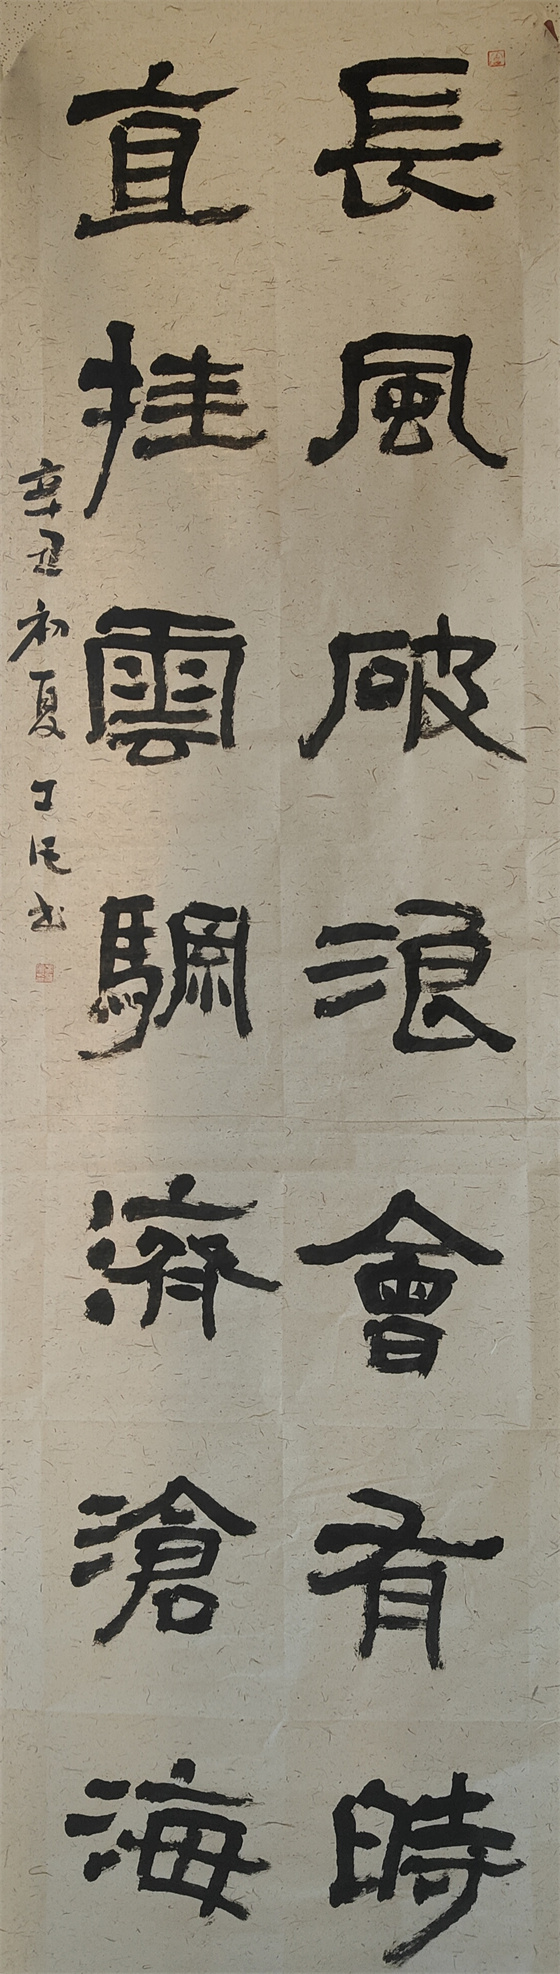 長風破浪會有時
直挂雲驅濟滄海
辛丑初夏丁氏书